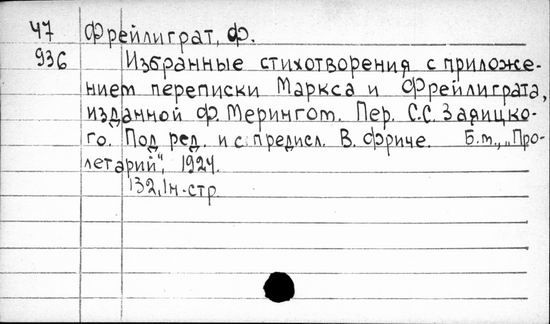 47 Фрейлиграт, Ф.
936 Избранные стихотворения с приложе-
нием переписки Маркса и Фрейлиграта,
изданной Ф. Мерингом. Пер. С.С. Заяицко-
го. Под ред. и с предисл. В. Фриче. Б.м., „Про-
летарий", 1924.
132,1н.стр